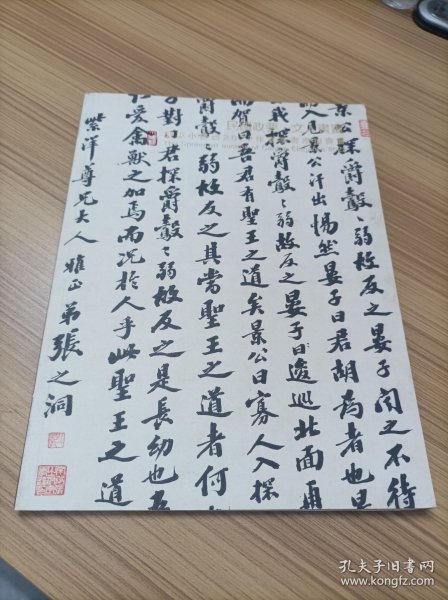 探爵鷇〻弱故反之晏子聞之不待
入見景公汗出惕然晏子曰君胡為者也曰
我探爵鷇〻弱故反之晏子曰逡巡北面再
而賀曰吾君有聖王之道矣景公曰寡人入探
爵鷇〻弱故反之其當聖王之道者何
子對曰君探爵鷇〻弱故反之是長幼也吾
仁愛禽獸之加焉而況於人乎此聖王之道
紫洋尊兄大人雅正 弟張之洞
孔夫子旧书网
www.kongfz.com